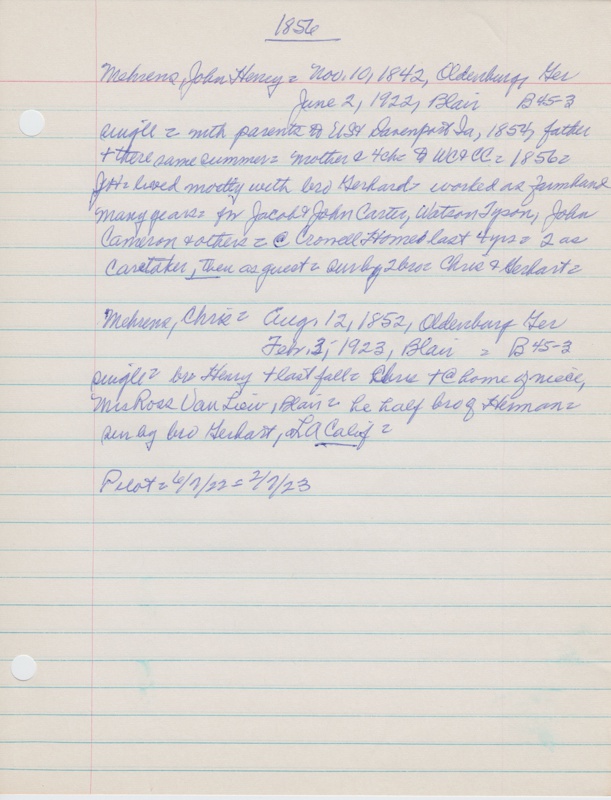 1856
Mehrens, John Henry = Nov. 10, 1842, Oldenburg, Ger
June 2, 1922, Blair B45-3
single = with parents to USA Davenport Ia, 1854, father
+ there same summer = mother & 4ch = to WC & CC = 1856 =
JH = lived mostly with bro Gerhard = worked as farmhand
many years = for Jacob & John Carter, Watson Tyson, John
Cameron & others = @ Crowell Home last 4 yrs = 2 as
caretaker, then as guest = sur by 2 bro = Chris & Gerhart =
Mehrens, Chris = Aug. 12, 1852, Oldenburg Ger
Feb. 3, 1923, Blair = B45-3
single = bro Henry + last fall = Chris + @ home of niece,
Mrs Ross Van Liew, Blair = he half bro of Herman =
sur by bro Gerhart, LA Calif =
Pilot = 6/7/22 = 2/7/23